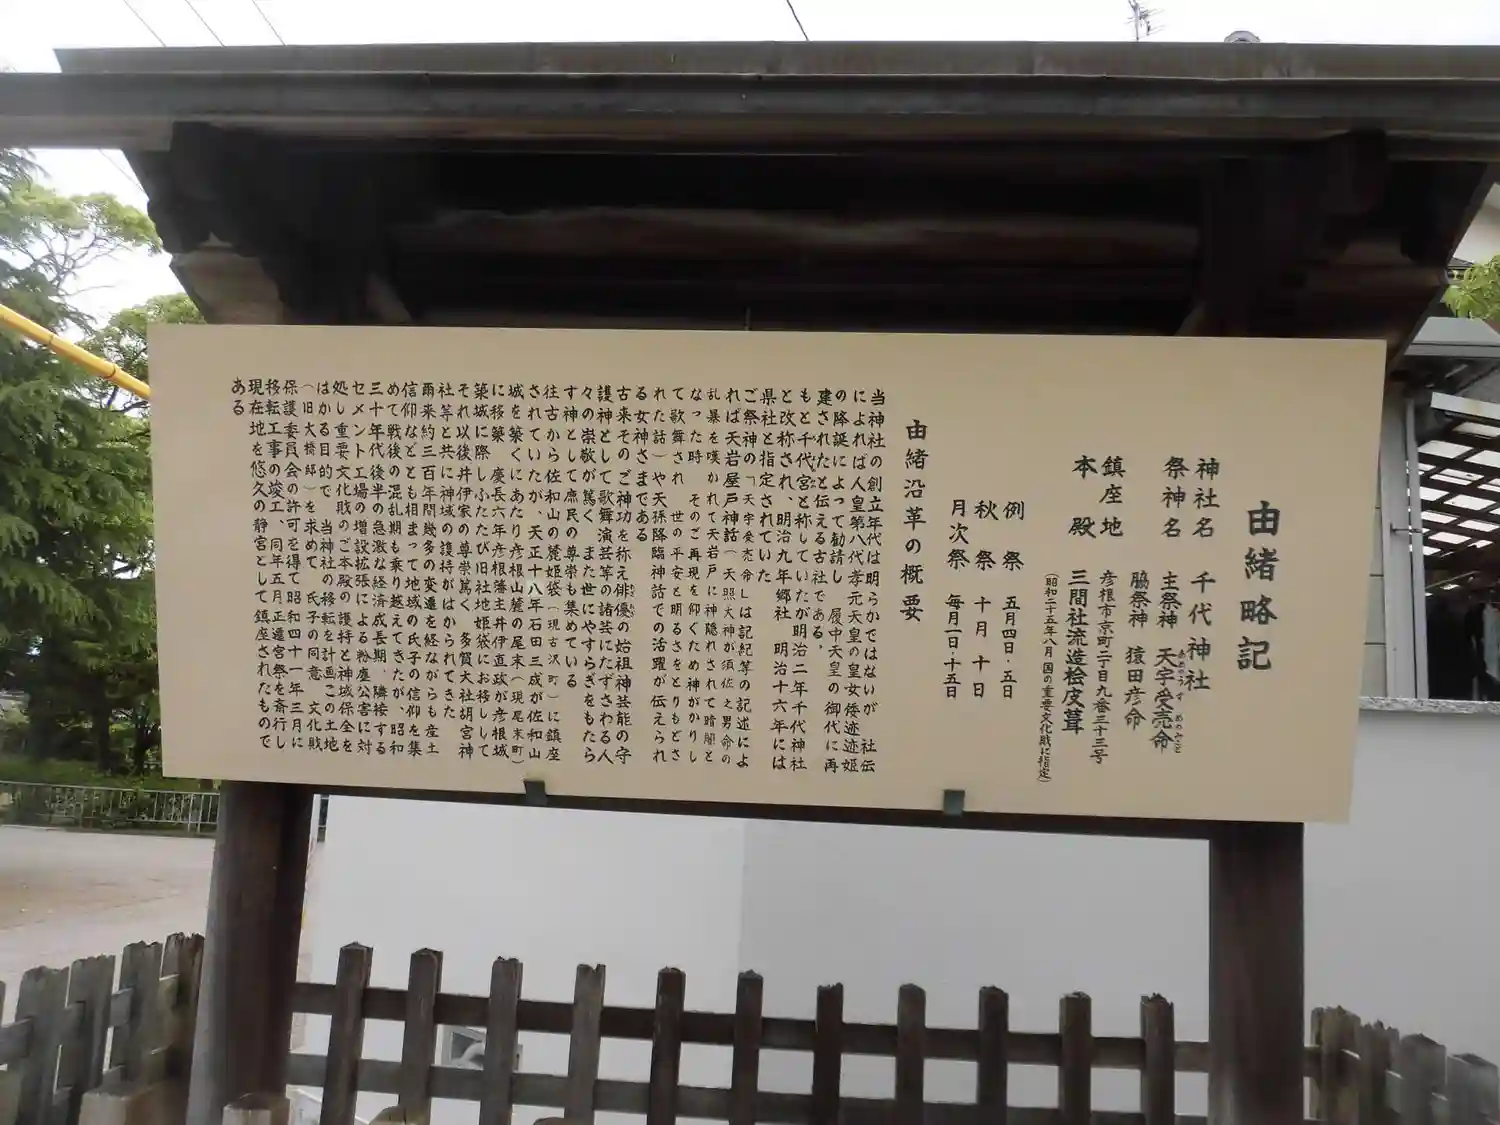 由緒略記
神社名　千代神社
祭神名　主祭神　天宇受売命
脇祭神　猿田彦命
鎮座地　彦根市京町二丁目九番三十三号
本殿　三間社流造桧皮葺
（昭和二十五年八月 国の重要文化財に指定）
例祭　五月四日・五日
秋祭　十月十日
月次祭　毎月一日・十五日
由緒沿革の概要
当神社の創立年代は明らかではないが 社伝
によれば人皇第八代孝元天皇の皇女倭迹迹姫
の降誕によって勧請し 履中天皇の御代に再
建されたと伝える古社である。
もと千代宮と称していたが明治二年千代神社
と改称され、明治九年郷社 明治十六年には
県社と指定されていた
ご祭神の「天宇受売命」は記紀等の記述によ
れば天岩屋戸神話（天照大神が須佐之男命の
乱暴を嘆かれて天岩戸に神隠れされて暗闇と
なった時 そのご再現を仰ぐため神がかりし
て歌舞され 世の平安と明るさをとりもどさ
れた話）や天孫降臨神話での活躍が伝えられ
る女神さまである
古来そのご神功を称え俳優の始祖神芸能の守
護神として歌舞演芸等の諸芸にたずさわる人
々の崇敬が篤く また世にやすらぎをもたら
す神として庶民の尊崇も集めている
往古から佐和山の麓姫袋（現古沢町）に鎮座
されていたが、天正十八年石田三成が佐和山
城を築くにあたり彦根山麓の尾末（現尾末町）
に移築 慶長六年彦根藩主井伊直政が彦根城
築城に際しふたたび旧社地姫袋にお移しして
それ以後井伊家の尊崇篤く、多賀大社胡宮神
社等と共に神域の護持がはかられてきた
爾来約三百年間幾多の変遷を経ながらも産土
信仰などとも相まって地域の氏子の信仰を集
めて戦後の混乱期も乗り越えてきたが、昭和
三十年代後半の急激な経済成長期、隣接する
セメント工場の増設拡張による粉塵公害に対
処し重要文化財のご本殿の護持と神域保全を
はかる目的で、当神社の移転を計画この土地
（旧大橋邸）を求めて、氏子の同意、文化財
保護委員会の許可を得て昭和四十一年三月に
移転工事の竣工、同年五月正遷宮祭を斎行し
現在地を悠久の静宮として鎮座されたもので
ある